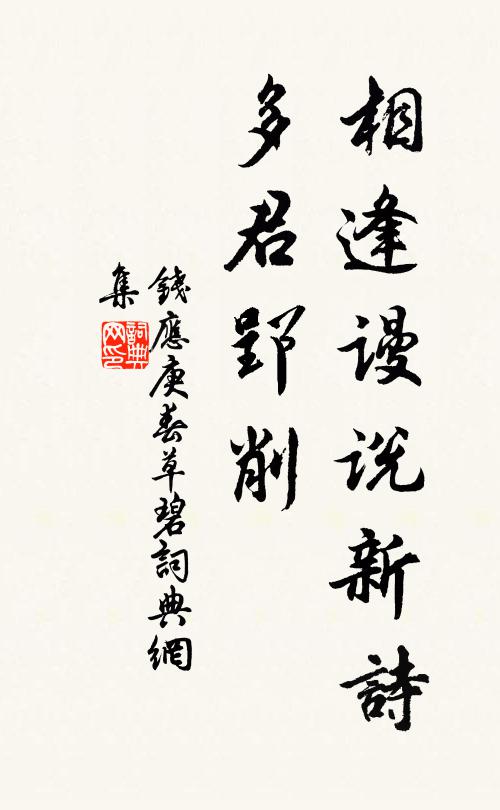 相逢謾说新詩
多君郢削
錢應庚春草碧詞典網
集
詞典网印